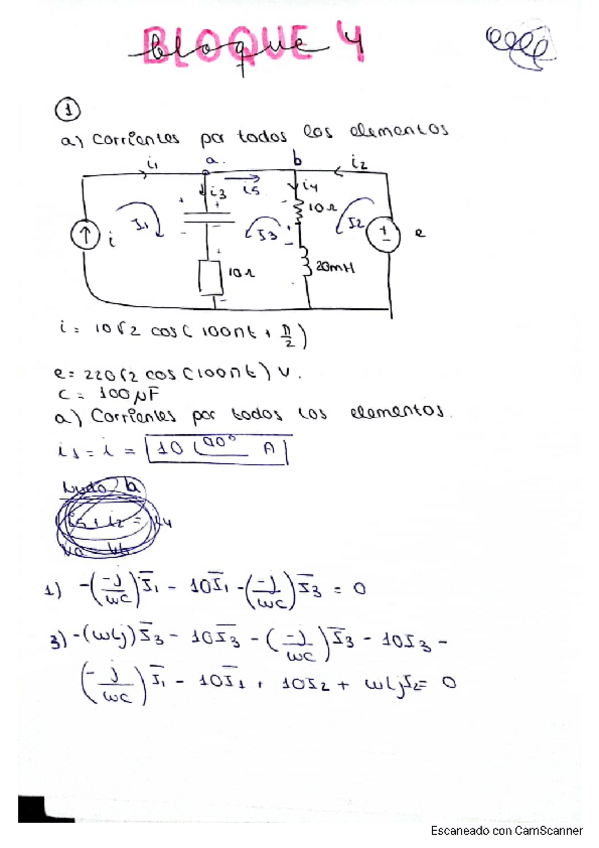 BLOQUE 4
bloque
①
a) Corrientes por todos los elementos
i₁ a. b i₂
i₃ i₅ i₄
10Ω
I₁ I₃ I₂
i e
10Ω 20mH
i = 10√2 cos(100πt + π/2)
e = 220√2 cos(100πt) V.
C = 100μF
a) Corrientes por todos los elementos.
i₁ = i = 10 ∠90° A
Nudo b
i₅ + i₂ = i₄
1) -(-j/ωC)I̅₁ - 10I̅₁ - (-j/ωC)I̅₃ = 0
3) -(ωLj)I̅₃ - 10I̅₃ - (-j/ωC)I̅₃ - 10I₃ -
(-j/ωC)I̅₁ - 10I̅₁ + 10I₂ + ωLjI₂ = 0
Escaneado con CamScanner